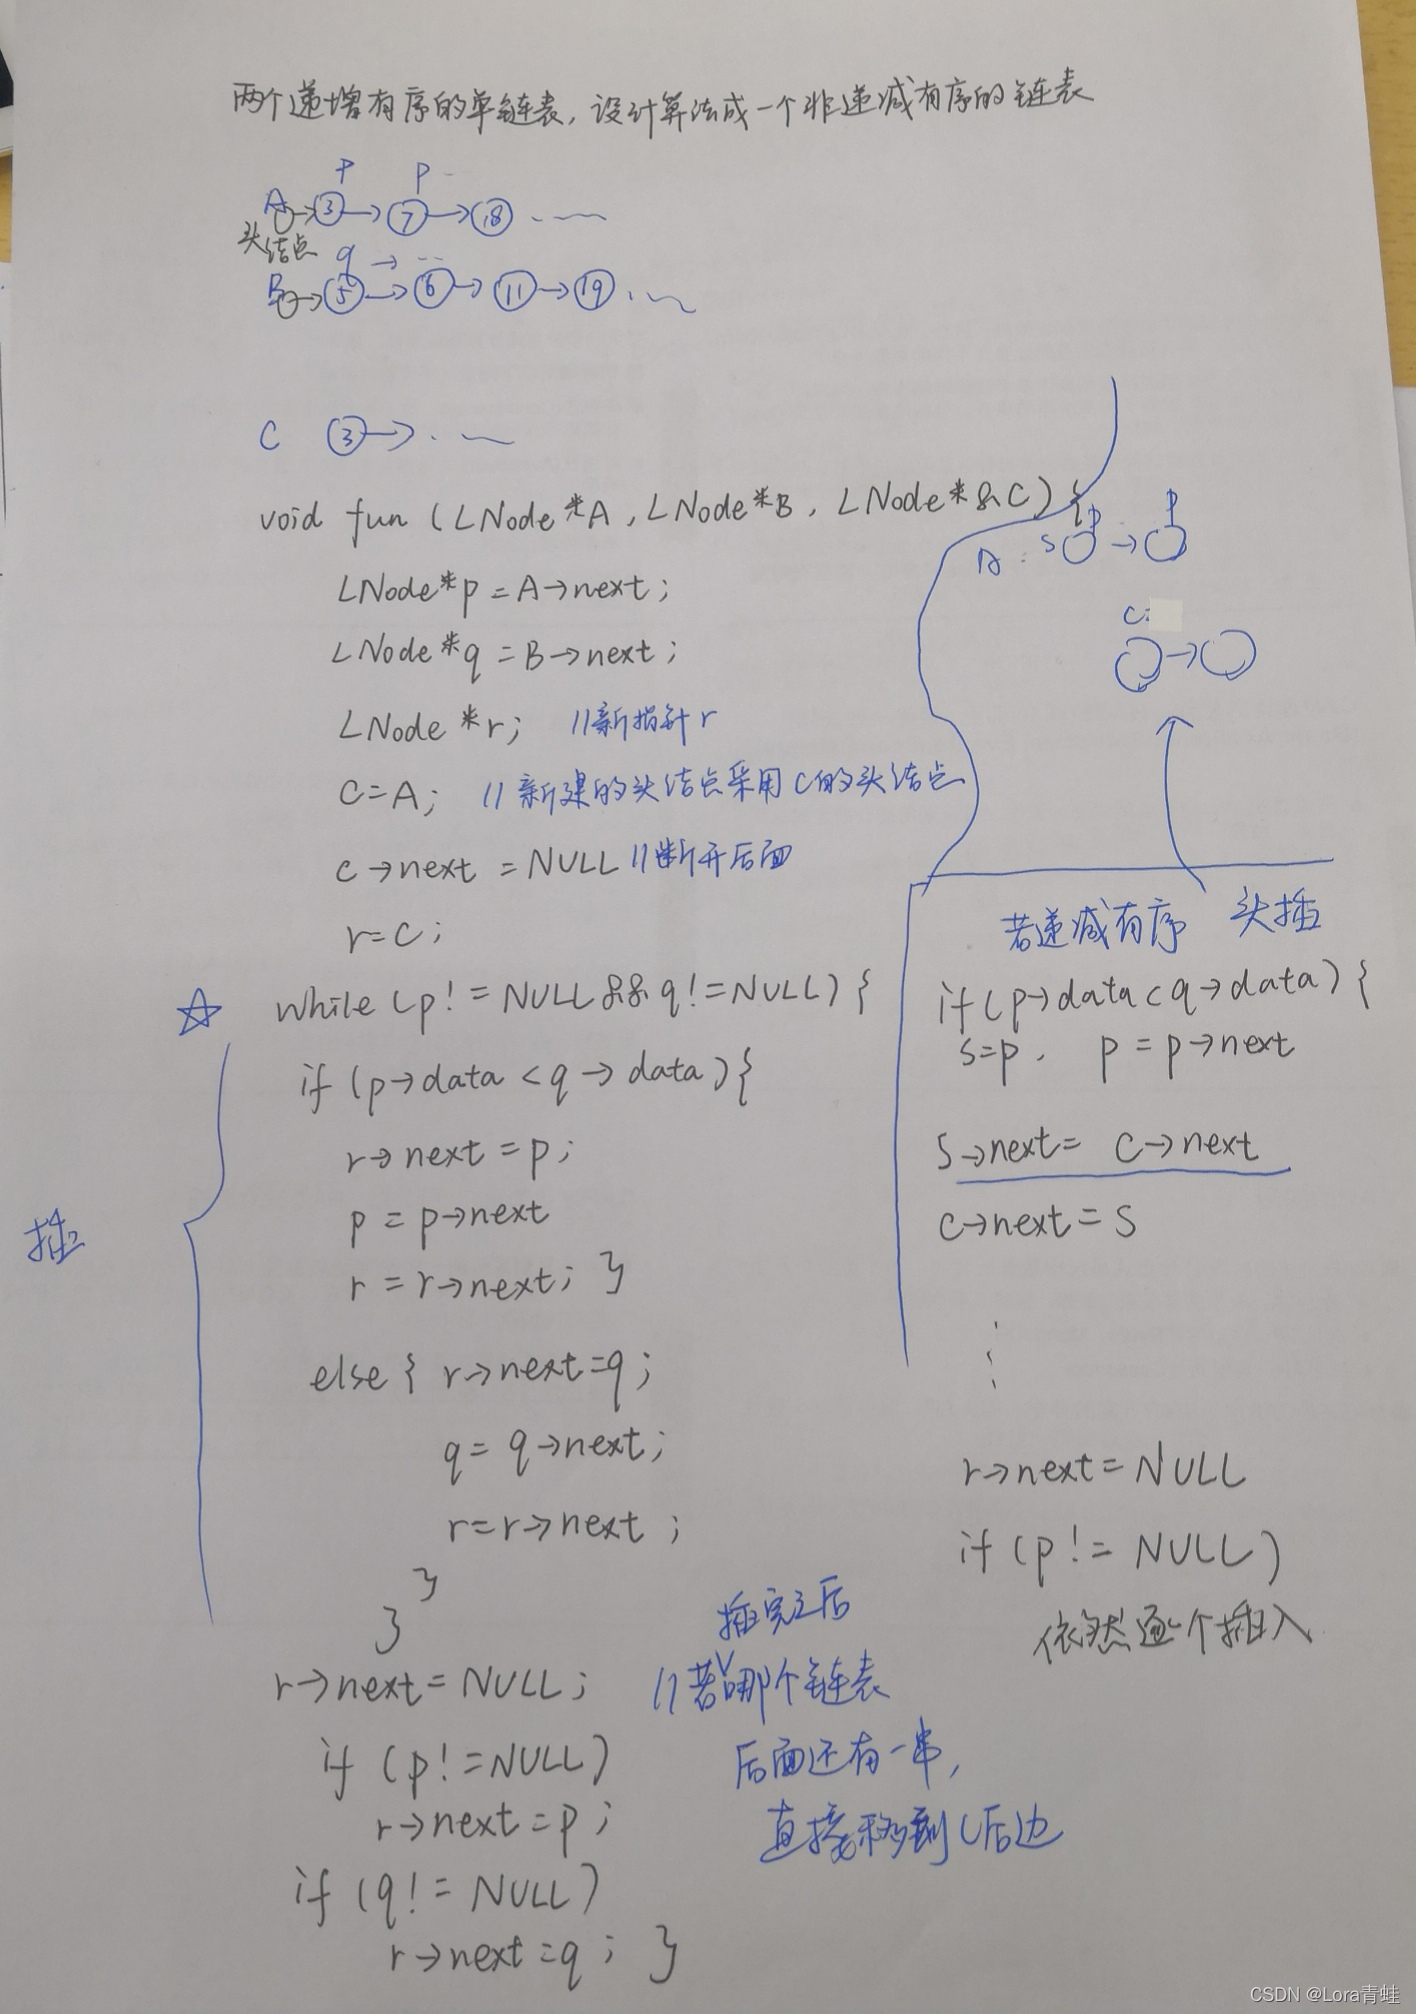 两个递增有序的单链表，设计算法成一个非递减有序的链表
p p
A → 3 → 7 → 18 ……
头结点
q → ..
B → 5 → 6 → 11 → 19 ……
C 3 → ……
void fun (LNode*A, LNode*B, LNode*&C) {
LNode*p = A→next;
LNode*q = B→next;
LNode *r; //新指针r
C=A; //新建的头结点采用C的头结点
C→next = NULL //断开后面
r=C;
☆ while (p!=NULL && q!=NULL) {
if (p→data < q→data) {
r→next = p;
p = p→next
r = r→next; }
插
else { r→next=q;
q = q→next;
r=r→next;
}
}
r→next=NULL; //若哪个链表
插完之后
if (p!=NULL) 后面还有一串,
r→next=p; 直接移到C后边
if (q!=NULL)
r→next=q; }
A: S p → p
C:
若递减有序 头插
if(p→data<q→data) {
S=p, p = p→next
S→next= C→next
C→next=S
r→next=NULL
if (p!=NULL)
依然逐个插入
CSDN @Lora青蛙